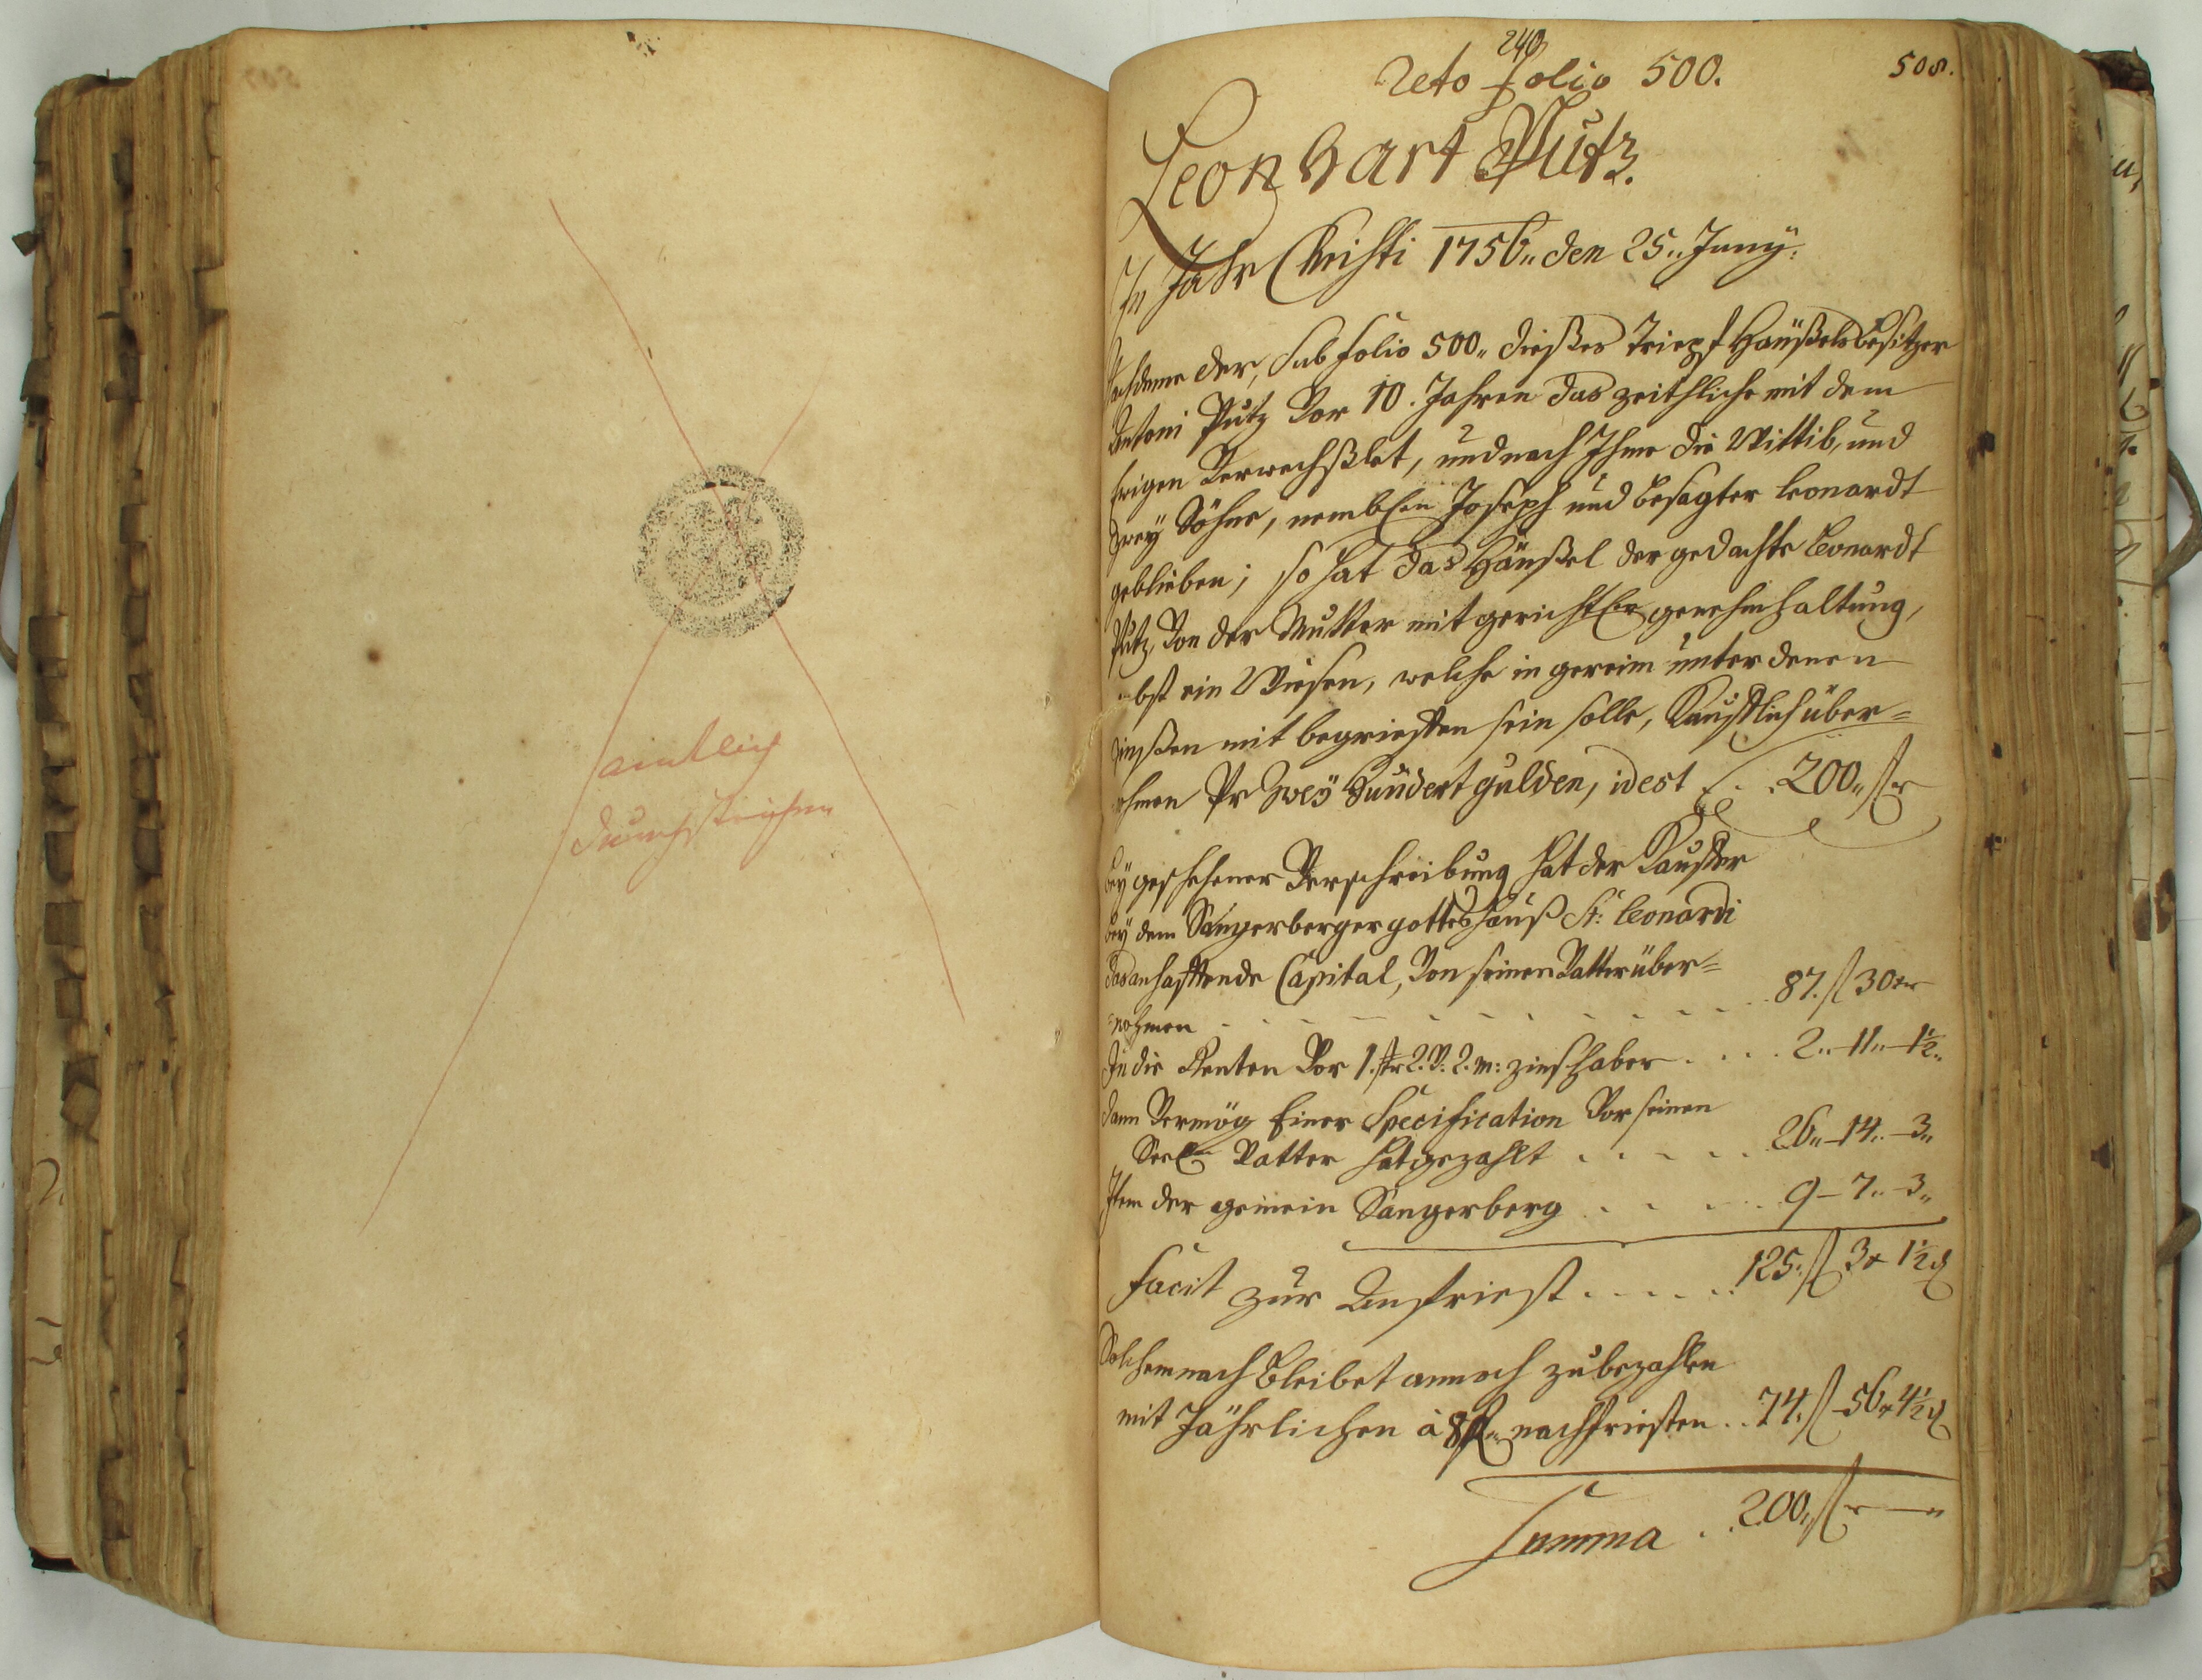 amtlich
durchstrichen
240
Reto folio 500.
508.
Leonhart Putz.
In Jahr Christi 1756" den 25" Juny:
Nachdeme der, sub folio 500" dießes Häußelsbesitzer
Antoni Putz vor 10. Jahren das zeithliche mit dem
Ewigen verwechßlet, und nach Ihme die Wittib, und
zwey Söhne, nemblen Joseph und besagter Leonardt
geblieben; so hat das Häußel der gedachte Leonardt
Putz, von der Mutter mit gerichtler genehmhaltung,
nebst ein Wiesen, welche in gereim unter denen
zinßen mit begrieffen sein solle, Kaufflich über-
nohmen Pr Zwey Hundert gulden, id est . . 200" f
Bey geschehener Verschreibung hat der Kauffer
bey dem Sangerberger gotteshauß St: Leonardi
das anhafftende Capital, von seinen Vatter über-
nohmen . . . . . . . . . . 87. f 30 xr
In die Renten vor 1. str 2. V. 2. m: zinshaber . . . . 2"-11"-1½"
dann vermög Einer Specification vor seinen
Seel Vatter hat gezahlt . . . . . 26"-14"-3"
Item der gemein Sangerberg . . . . 9-7"-3"
facit zur Anfriest . . . . . 125" f 3 x 1½ d
Solchemnach bleibet annoch zu bezahlen
mit Jährlichen à 8 f nachfriesten . . 74. f 56 x 4½ d
Summa . . 200" f